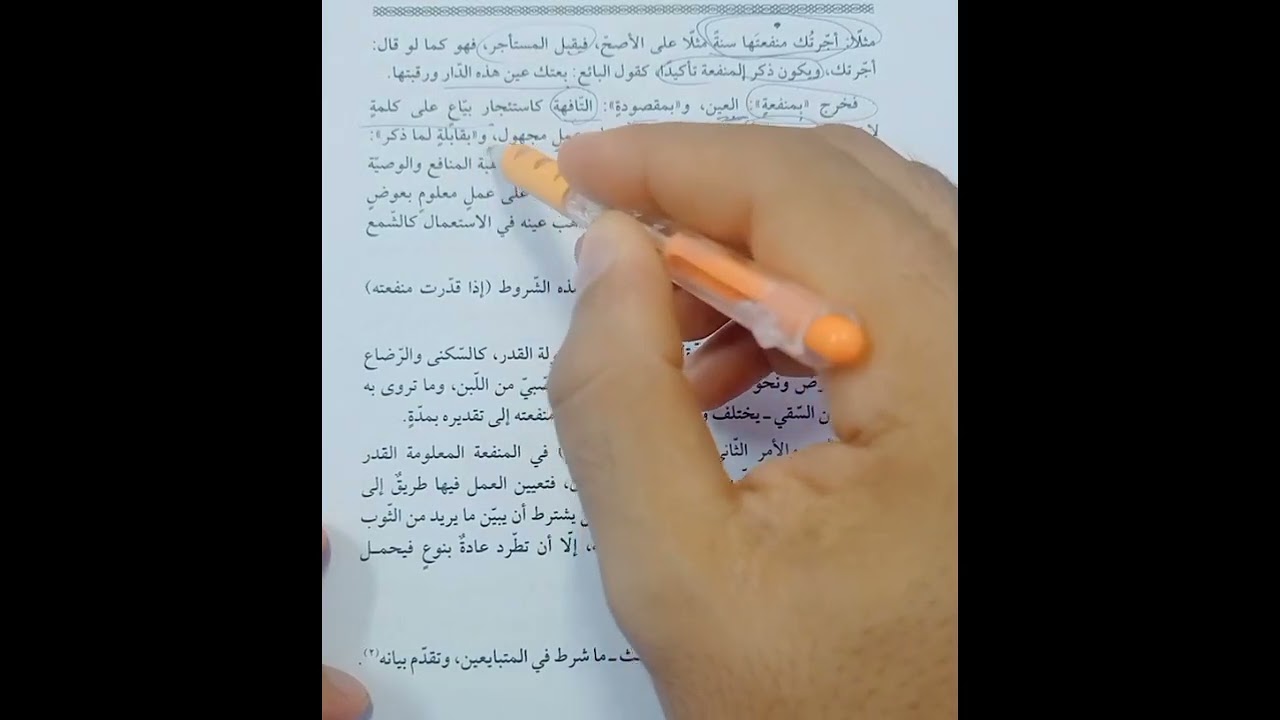 مثلًا: أجّرتُك منفعتَها سنةً مثلًا على الأصحّ، فيقبل المستأجر، فهو كما لو قال:
أجّرتك، ويكون ذكر المنفعة تأكيدًا، كقول البائع: بعتك عين هذه الدّار ورقبتها.
فخرج «بمنفعةٍ»: العين، و«بمقصودةٍ»: التّافهة كاستئجار بيّاعٍ على كلمةٍ
عملٍ مجهولٍ، و«بقابلةٍ لما ذكر»:
المنافع والوصيّة
على عملٍ معلومٍ بعوضٍ
عينه في الاستعمال كالشّمع
الشّروط (إذا قدّرت منفعته)
القدر، كالسّكنى والرّضاع
من اللّبن، وما تروى به
السّقي ـ يختلف
منفعته إلى تقديره بمدّةٍ.
والأمر
في المنفعة المعلومة القدر
فتعيين العمل فيها طريقٌ إلى
يشترط أن يبيّن ما يريد من الثّوب
إلّا أن تطّرد عادةٌ بنوعٍ فيحمل
ـ ما شرط في المتبايعين، وتقدّم بيانه(٢).